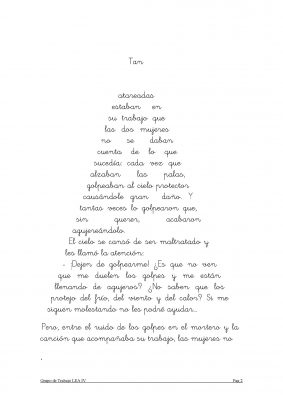 Tan
atareadas
estaban en
su trabajo que
las dos mujeres
no se daban
cuenta de lo que
sucedía: cada vez que
alzaban las palas,
golpeaban al cielo protector
causándole gran daño. Y
tantas veces lo golpearon que,
sin querer, acabaron
agujereándolo.
El cielo se cansó de ser maltratado y
les llamó la atención:
- Dejen de golpearme! ¿Es que no ven
que me duelen los golpes y me están
llenando de agujeros? ¿No saben que los
protejo del frío, del viento y del calor? Si me
siguen molestando no les podré ayudar...
Pero, entre el ruido de los golpes en el mortero y la
canción que acompañaba su trabajo, las mujeres no
.
Grupo de Trabajo LEA IV Pag 2